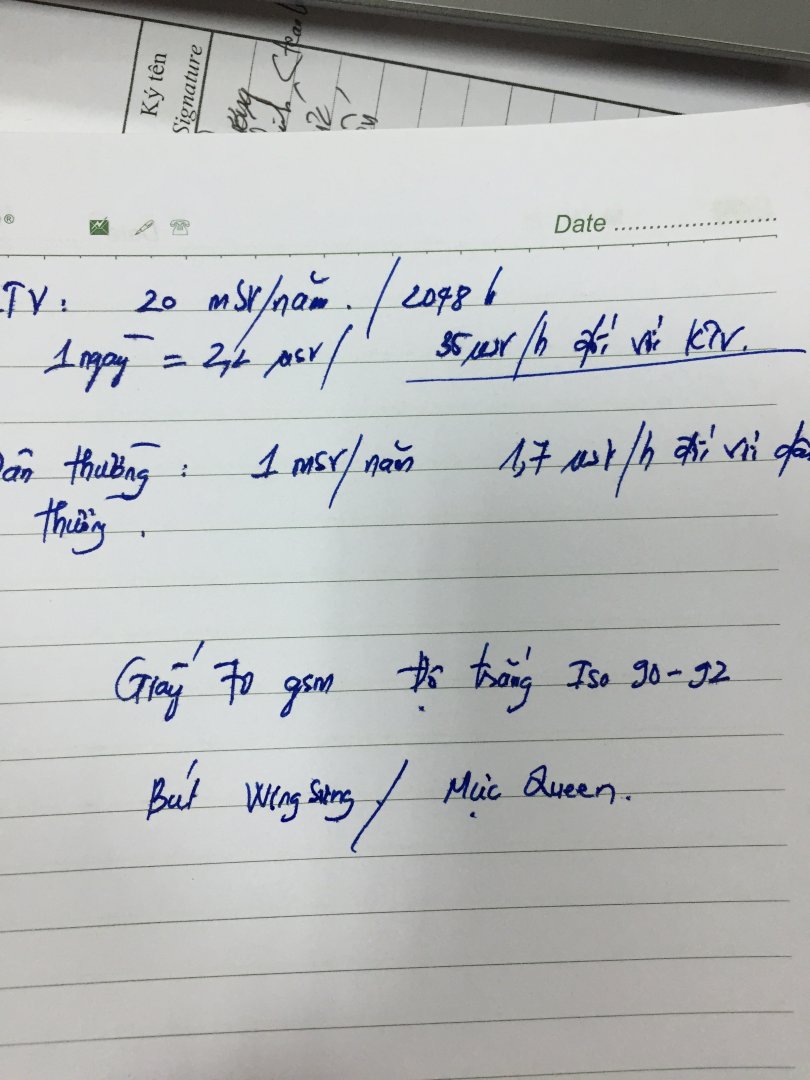 Ký tên
Signature
®
Date
TV: 20 mSv/năm. / 2048 h
1 ngày = 2,2 µsv/ 35 µsv/h đối với KTV.
thường: 1 msv/năm 1,7 µsv/h đối với
thường.
Giấy 70 gsm Độ trắng Iso 90-92
Bút Wing Sung / Mực Queen.